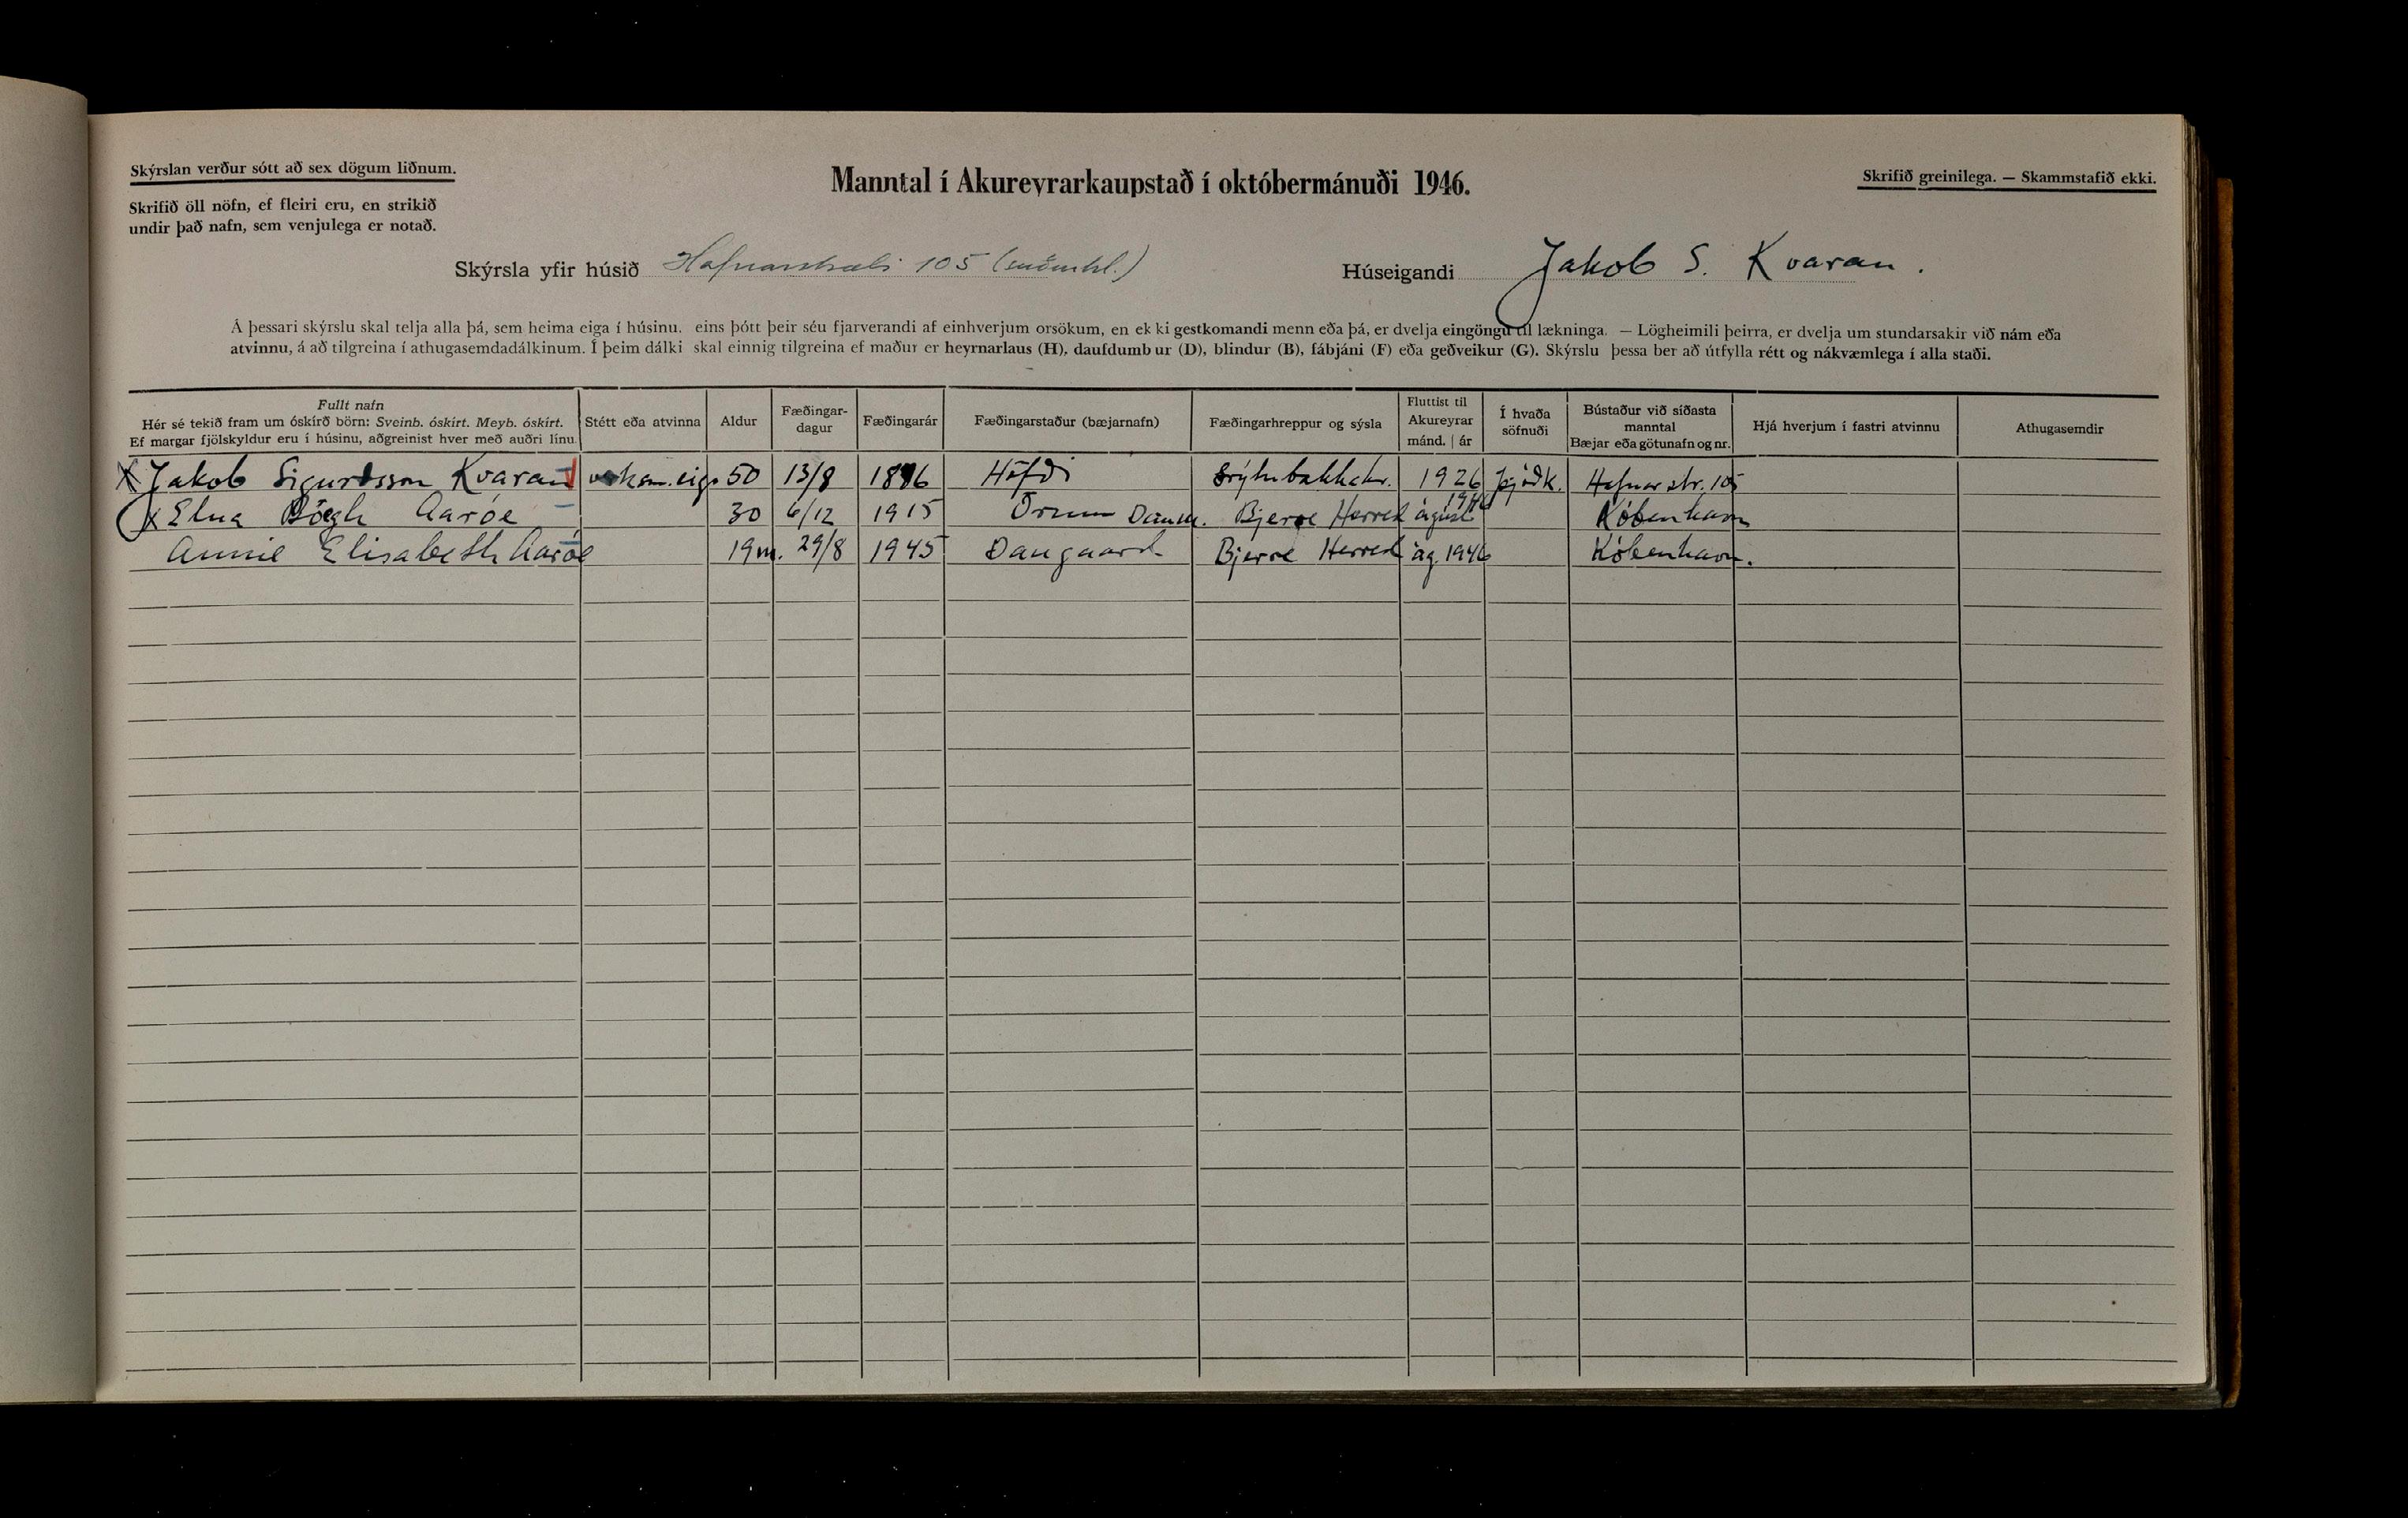 Skýrslan verður sótt að sex dögum liðnum.
Skrifið öll nöfn, ef fleiri eru, en strikið
undir það nafn, sem venjulega er notað.
Manntal í Akureyrarkaupstað í októbermánuði 1946.
Skrifið greinilega. — Skammstafið ekki.
Skýrsla yfir húsið Hafnarstræti 105
Húseigandi Jakob S. Kvaran.
Á þessari skýrslu skal telja alla þá, sem heima eiga í húsinu, eins þótt þeir séu fjarverandi af einhverjum orsökum, en ek ki gestkomandi menn eða þá, er dvelja eingöngu til lækninga. — Lögheimili þeirra, er dvelja um stundarsakir við nám eða
atvinnu, á að tilgreina í athugasemdadálkinum. Í þeim dálki skal einnig tilgreina ef maður er heyrnarlaus (H), daufdumb ur (D), blindur (B), fábjáni (F) eða geðveikur (G). Skýrslu þessa ber að útfylla rétt og nákvæmlega í alla staði.
Fullt nafn
Hér sé tekið fram um óskírð börn: Sveinb. óskírt. Meyb. óskírt.
Ef margar fjölskyldur eru í húsinu, aðgreinist hver með auðri línu.
Stétt eða atvinna
Aldur
Fæðingar-
dagur
Fæðingarár
Fæðingarstaður (bæjarnafn)
Fæðingarhreppur og sýsla
Fluttist til
Akureyrar
mánd. | ár
Í hvaða
söfnuði
Bústaður við síðasta
manntal
Bæjar eða götunafn og nr.
Hjá hverjum í fastri atvinnu
Athugasemdir
x Jakob Sigurðsson Kvaran 50 13/8 1896 Höfði Grýtubakkahr. 1926 Þjóðk. Hafnarstr. 105
x Elna Bögh Aaróe 30 6/12 1915 Örum Danm. Bjerre Herred ágúst 1946 Köbenhavn
Annie Elisabeth Aaróe 19 m. 29/8 1945 Daugaard Bjerre Herred ág. 1946 Köbenhavn.